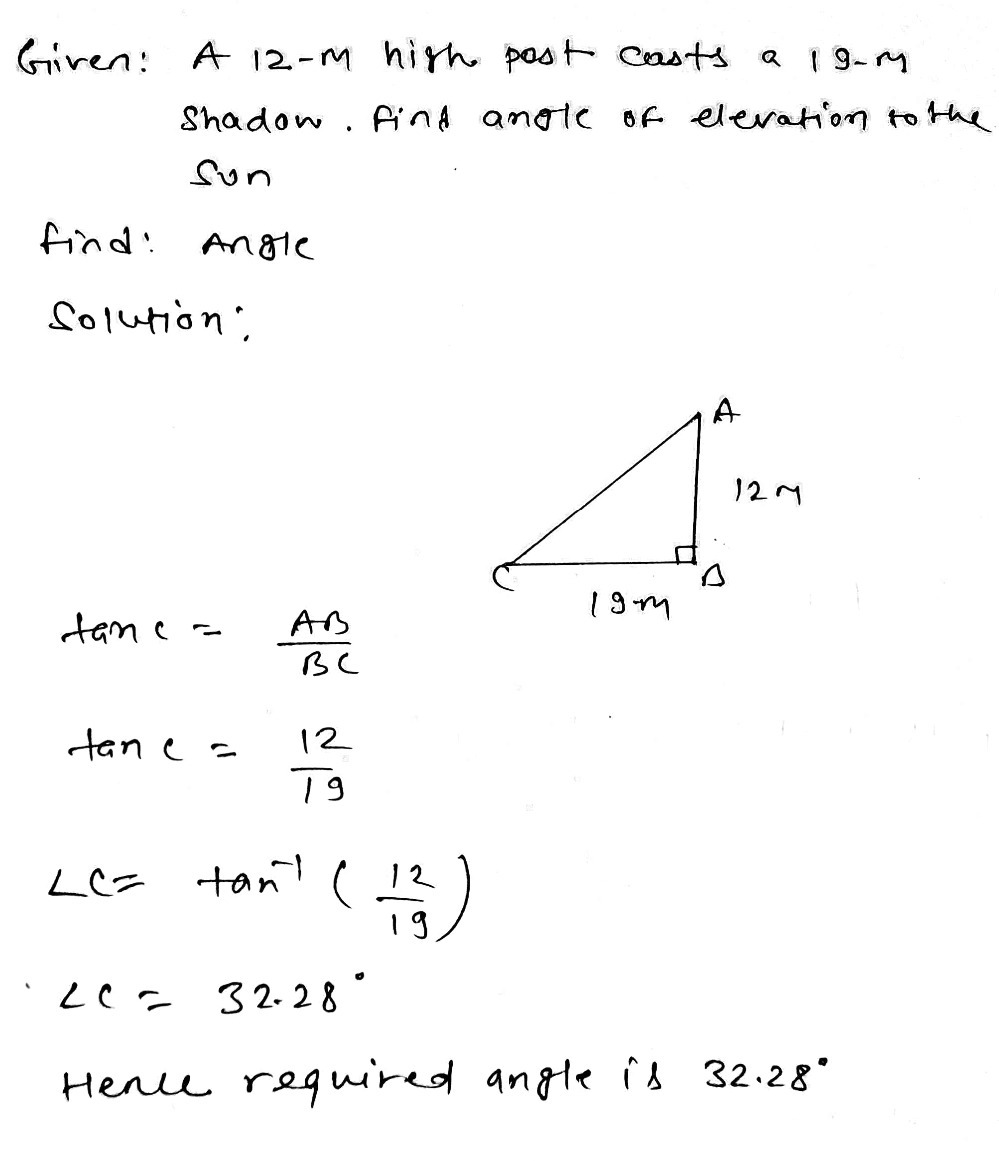 Given: A 12-M high post casts a 19-m
Shadow. find angle of elevation to the
Sun
find: Angle
Solution:
A
12 m
C
B
19 m
tan c = AB/BC
tan c = 12/19
∠C = tan⁻¹ (12/19)
∠C = 32.28°
Hence required angle is 32.28°